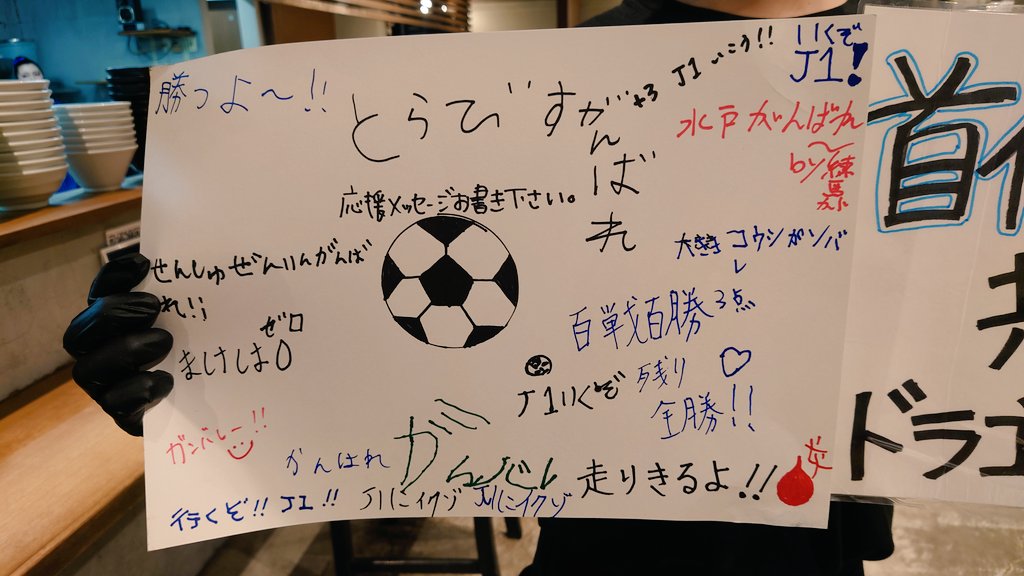 勝つよ～!!
とらびずす
がんばれ
J1いこう!!
いくぞ
J1!
水戸がんばれ
応援メッセージお書き下さい。
せんしゅぜんいんがんば
れ!!
ゼロ
まけしは0
百戦百勝
3点
残り
全勝!!
J1いくぞ
ガンバレー!!
かんはれ
走りきるよ!!
行くぞ!! J1!!
J1にイクゾ
J1にイクゾ
首
ドラゴ